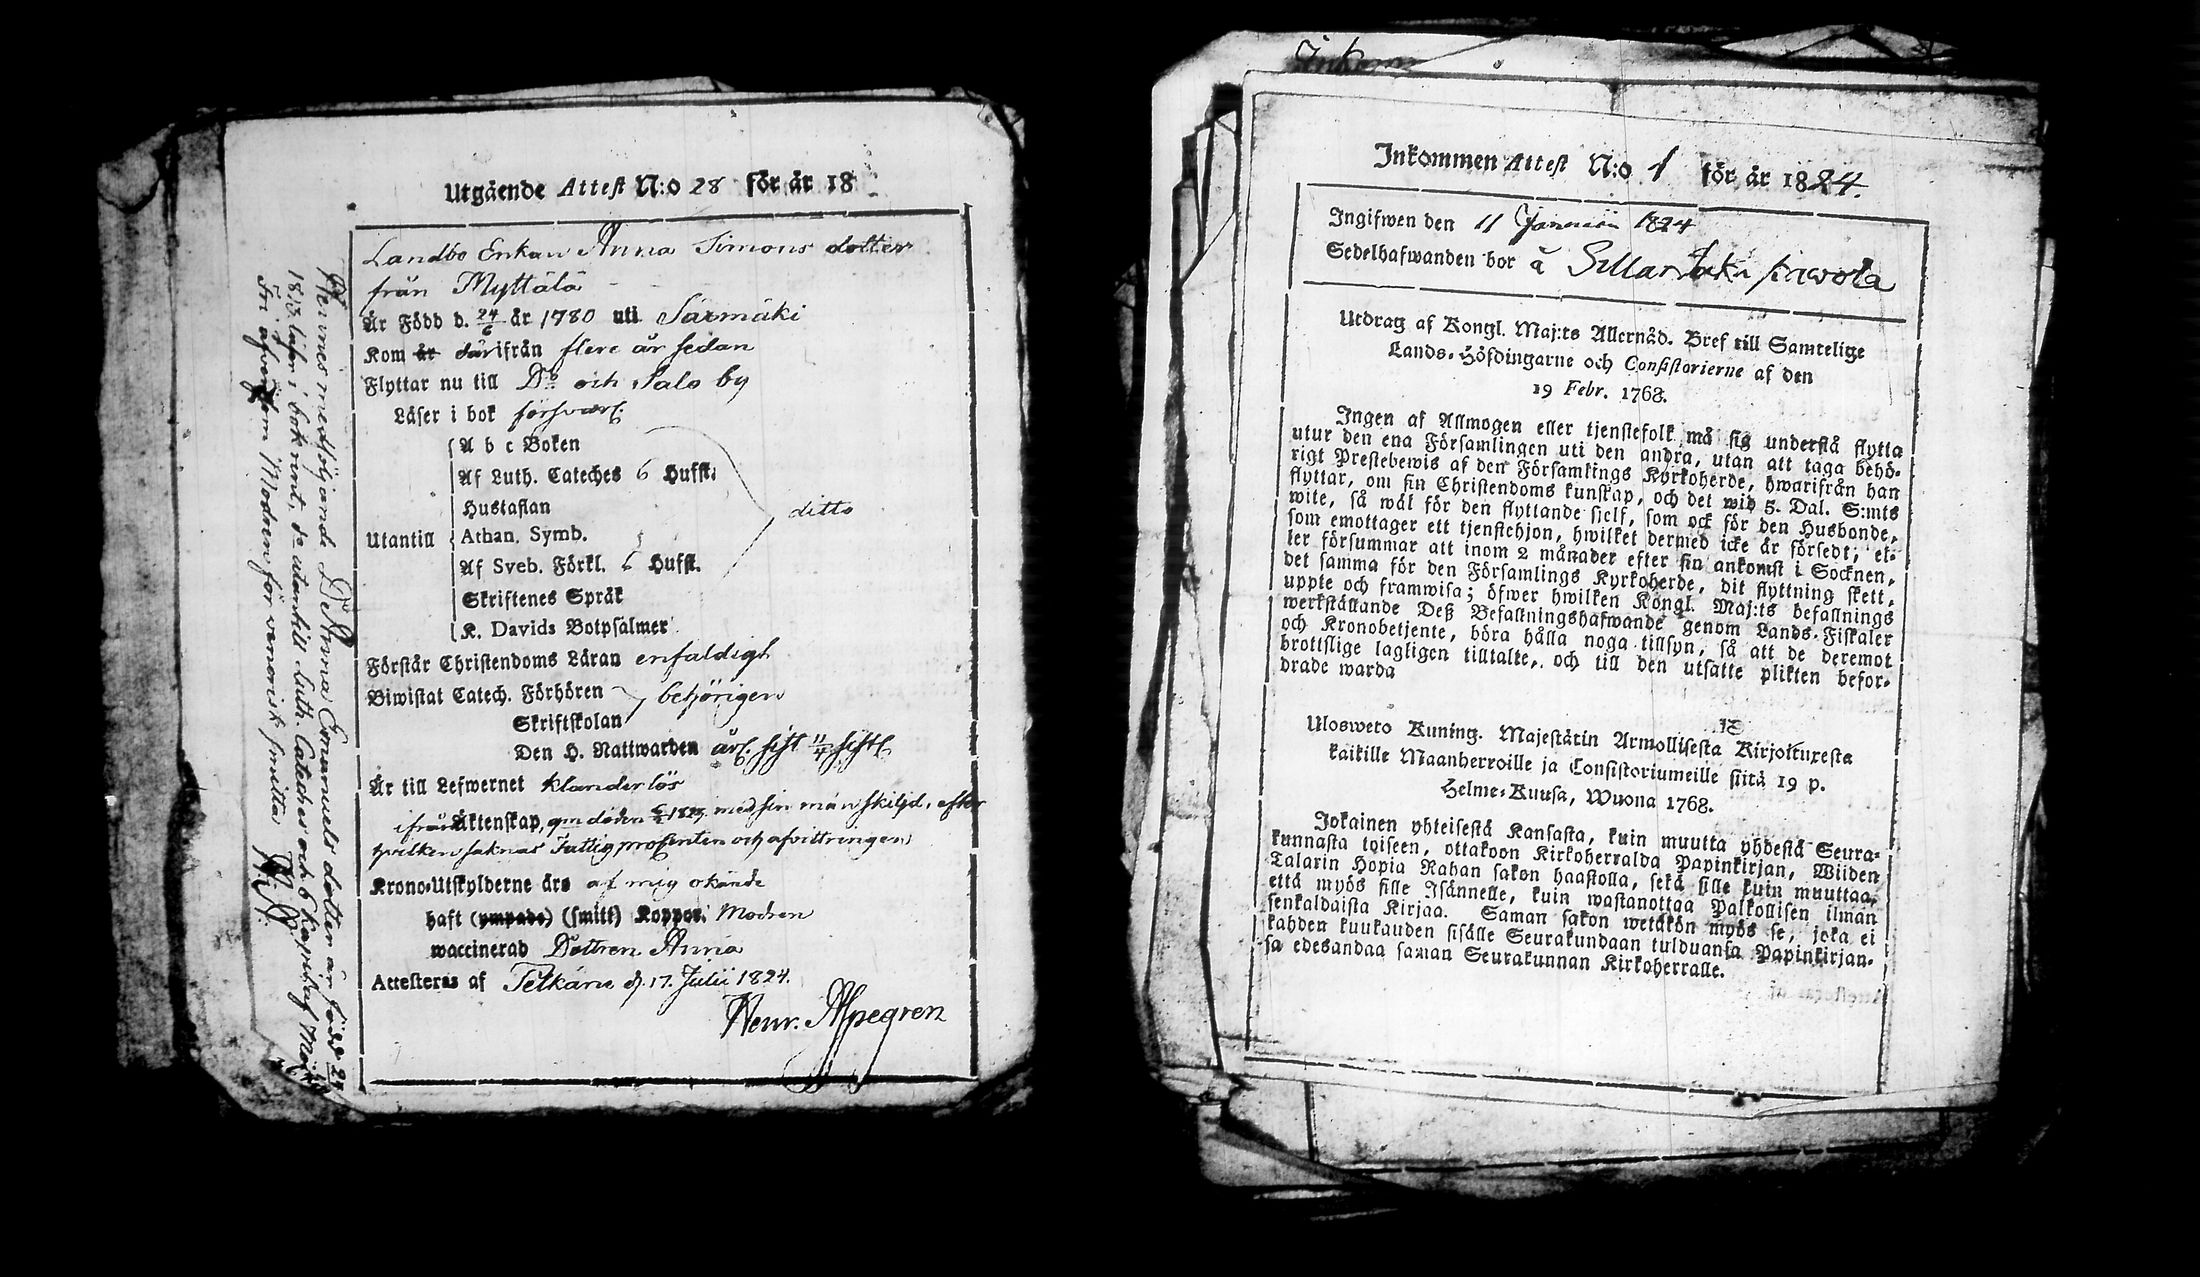 Utgående Attest N:o 28 för år 18
Landbo Enkan Anna Simons dotter
från Myttälä
Är Född d. 24/6 år 1780 uti Särmäki
Kom år därifrån flere år sedan
Flyttar nu till Do och Salo by
Läser i bok försvarl.
A b c Boken
Af Luth. Cateches 6 Hufst.
Hustaflan
ditto
Utantill Athan. Symb.
Af Sveb. Förkl. 6 Hufst.
Skriftenes Språk
K. Davids Botpsalmer
Förstår Christendoms Läran enfaldigt
Biwistat Catech. Förhören
behörigen
Skriftskolan
Den H. Nattwarden årl. sist 11/4 sistl.
Är till Lefwernet klanderlös
ifrån Äktenskap, gm döden med sin man skiljd, efter
hvilken saknas Fattig procenten och afvittringen
Krono-Utskylderne äro af mig okände
haft (ympade) (smitt) Koppor. Modren
waccinerad Dottren Anna
Attesteras af Pelkäne d. 17. Julii 1824.
Henr. Alpegren
Hennes medföljande Do Anna Emanuels dotter är född 24
1813 läser i bok nint, do utantill Luth. Cateches och 6 Kapitel
fri äfven som Modren för venerisk smitta H. A.
Inkom
Inkommen Attest N:o 1 för år 1824.
Ingifwen den 11 Januarii 1824
Sedelhafwanden bor å
Utdrag af Kongl. Maj:ts Allernåd. Bref till Samtelige
Lands-Höfdingarne och Consistorierne af den
19 Febr. 1768.
Ingen af Allmogen eller tjenstefolk må sig understå flytta
utur den ena Församlingen uti den andra, utan att taga behö-
rigt Prestebewis af den Församlings Kyrkoherde, hwarifrån han
flyttar, om sin Christendoms kunskap, och det wid 5. Dal. S:mts
wite, så wäl för den flyttande sjelf, som ock för den Husbonde,
som emottager ett tjenstehjon, hwilket dermed icke är försedt; el-
ler försummar att inom 2 månader efter sin ankomst i Socknen,
det samma för den Församlings Kyrkoherde, dit flyttning skett,
uppte och framwisa; öfwer hwilken Kongl. Maj:ts befallnings
werkställande Deß Befallningshafwande genom Lands-Fiskaler
och Kronobetjente, böra hålla noga tillsyn, så att de deremot
brottslige lagligen tilltalte, och till den utsatte plikten befor-
drade warda
Ulosweto Kuning. Majestätin Armollisesta Kirjoituxesta
kaikille Maanherroille ja Consistoriumeille siitä 19 p.
Helme-Kuusa, Wuona 1768.
Jokainen yhteisestä Kansasta, kuin muutta yhdestä Seura-
kunnasta toiseen, ottakoon Kirkoherralda Papinkirjan, Wiiden
Talarin Hopia Rahan sakon haastolla, sekä sille kuin muuttaa,
että myös sille Isännelle, kuin wastanottaa Palkollisen ilman
senkaldaista Kirjaa. Saman sakon wetäkön myös se, joka ei
kahden kuukauden sisälle Seurakundaan tulduansa Papinkirjan-
sa edesandaa saman Seurakunnan Kirkoherralle.